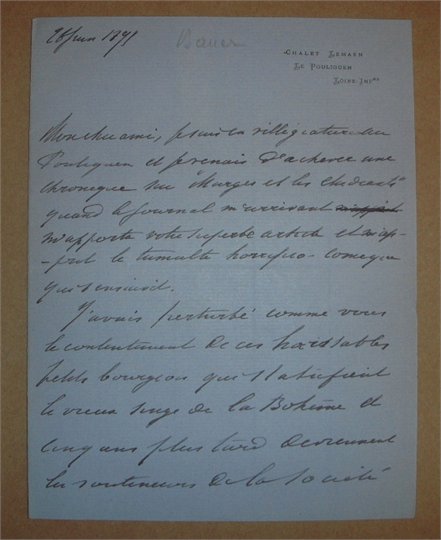 26 juin 1891
Bauer
CHALET LEMAEN
LE POULIGUEN
LOIRE INFre
Mon cher ami, je suis en villégiature au
Pouliguen et je venais d'achever une
chronique sur "Murger et les étudiants"
quand le journal m'arrivant
m'apporta votre superbe article et m'ap-
-prit le tumulte horrifico-comique
qui s'ensuivit.
J'avais perturbé comme vous
le contentement de ces
petits bourgeois qui
le vieux singe de la Bohême et
cinq ans plus tard deviennent
les souteneurs de la société